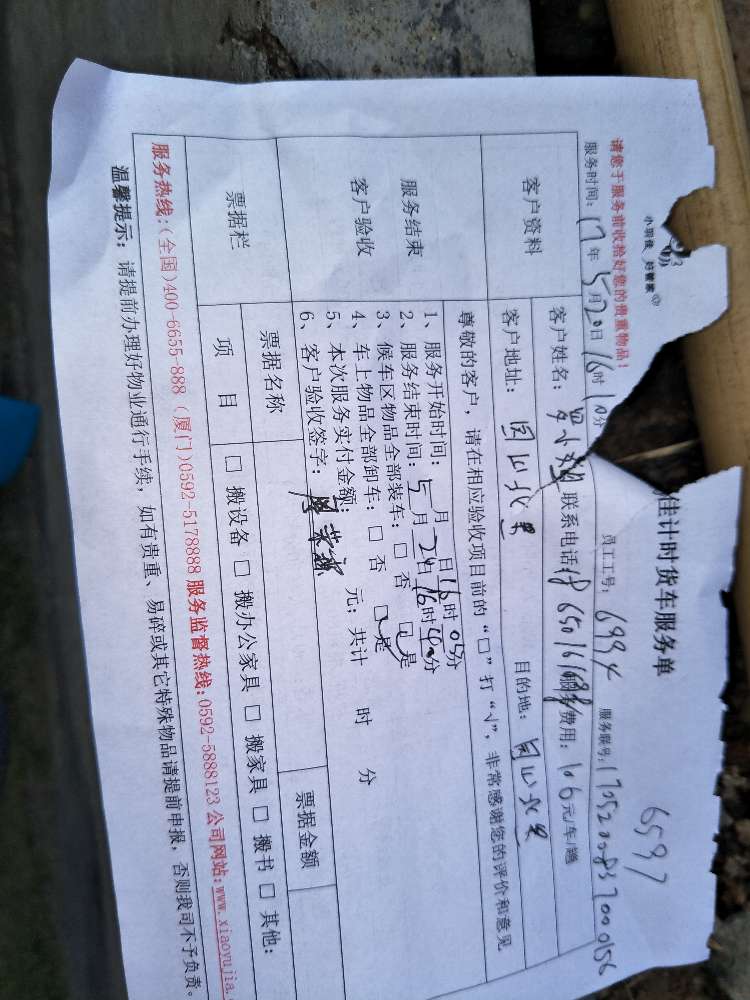 6597
小羽佳 好管家
佳计时货车服务单
请您于服务前收拾好您的贵重物品!
员工工号: 6994 服务联号:
服务时间: 17年 5月20日 16时10分
客户资料 客户姓名: 联系电话 服务费用: 106元/车/趟
客户地址: 目的地:
尊敬的客户,请在相应验收项目前的“□”打“√”,非常感谢您的评价和意见
服务结束
客户验收
1、服务开始时间: 月 日16时05分
2、服务结束时间: 5月20日16时40分
3、候车区物品全部装车: □ 否 是
4、车上物品全部卸车: □ 否 是
5、本次服务实付金额: 元; 共计 时 分
6、客户验收签字:
票据栏 票据名称 票据金额
项 目 □ 搬设备 □ 搬办公家具 □ 搬家具 □ 搬书 □ 其他:
服务热线:(全国)400-6655-888 (厦门)0592-5178888 服务监督热线:0592-5888123 公司网站:www.xiaoyujia.
温馨提示: 请提前办理好物业通行手续,如有贵重、易碎或其它特殊物品请提前申报,否则我司不予负责。